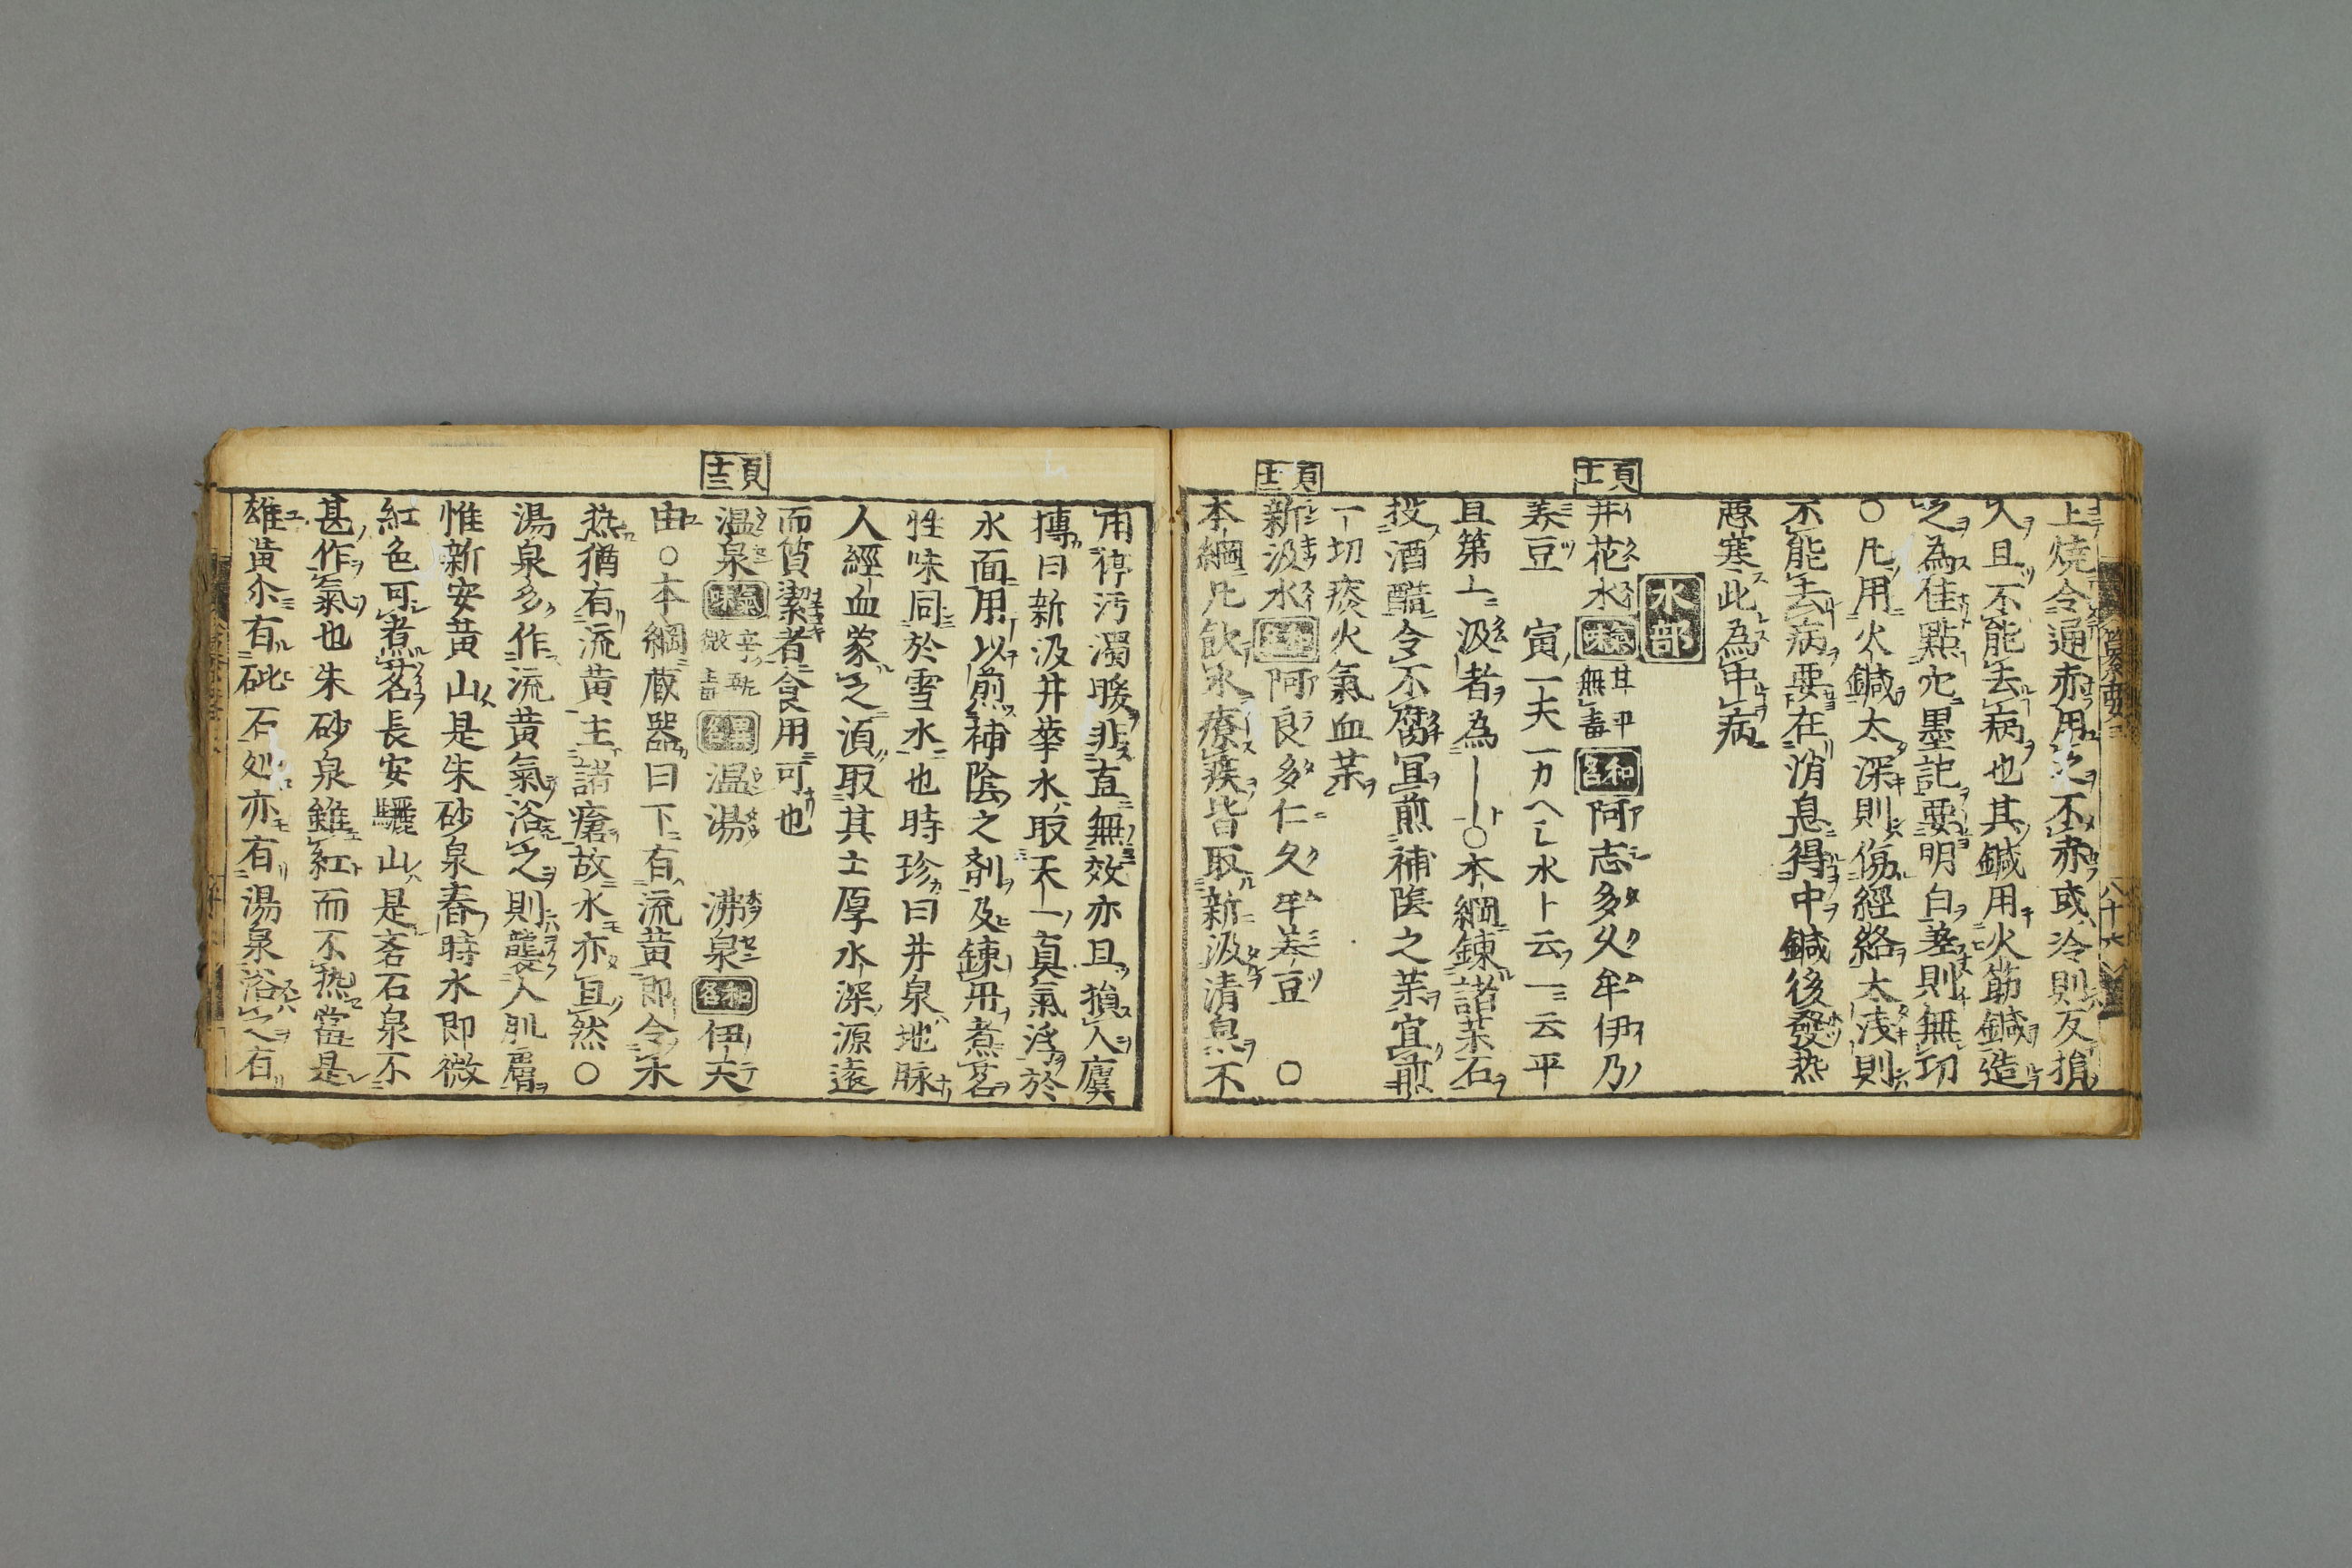 上燒令通赤用之不赤或冷則反損
人且不能去病也其鍼用火筯鍼造
之為佳點穴墨記要明白差則無功
○凡用火鍼太深則傷經絡太浅則
不能去病要在消息得中鍼後發热
惡寒此為中病
水部
頁十
井花水 氣味 甘平無毒 和名 阿志多久牟伊乃
美豆 寅一夫一カヘし水ト云一云平
且第一汲者為――○本綱鍊諸茉石
投酒醋令不腐宜煎補陰之茉宜煎
一切痰火氣血茉
頁十
新汲水 阿良多仁久牟美豆 ○
本綱凡飲水療疾皆取新汲清泉不
用停汚濁暖非直無效亦且損人虞
摶曰新汲井華水取天一真氣浮於
水面用以煎補陰之剤及鍊丹煮茗
性味同於雪水也時珍曰井泉地脉
人經血象之湏取其土厚水深源遠
而質潔者食用可也
頁
温泉 氣味 辛热微毒 異名 温湯 沸泉 和名 伊天
由○本綱蔵器曰下有流黄即令水
热猶有流黄主諸瘡故水亦宜然○
湯泉多作流黄氣浴之則襲人肌膚
惟新安黄山是朱砂泉春時水即微
紅色可煮茗長安驪山是砉石泉不
甚作氣也朱砂泉雖紅而不热當是
雄黄尓有砒石処亦有湯泉浴之有